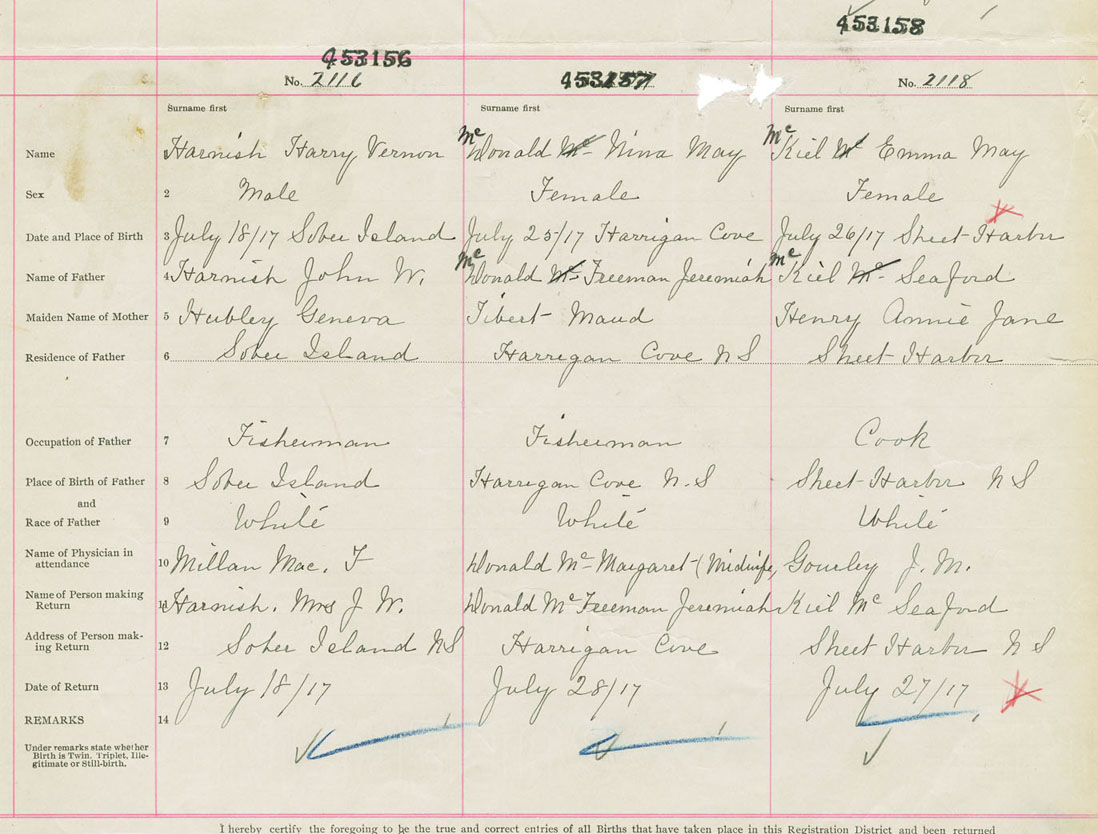 453158
453156
No. 2116 453157 No. 2118
Surname first Surname first Surname first
Name 1 Harnish Harry Vernon McDonald Mc Nina May McKiel Mc Emma May
Sex 2 Male Female Female
Date and Place of Birth 3 July 18/17 Sober Island July 25/17 Harrigan Cove July 26/17 Sheet Harbor
Name of Father 4 Harnish John W. McDonald Mc Freeman Jeremiah McKiel Mc Seaford
Maiden Name of Mother 5 Hubley Geneva Tibert Maud Henry Annie Jane
Residence of Father 6 Sober Island Harrigan Cove N S Sheet Harbor
Occupation of Father 7 Fisherman Fisherman Cook
Place of Birth of Father 8 Sober Island Harrigan Cove N.S Sheet Harbor N S
and
Race of Father 9 White White White
Name of Physician in
attendance 10 Millan Mac. F Donald Mc Margaret (Midwife, Gourley J. M.
Name of Person making
Return 11 Harnish. Mrs J W. Donald Mc Freeman Jeremiah Kiel Mc Seaford
Address of Person mak-
ing Return 12 Sober Island NS Harrigan Cove Sheet Harbor N S
Date of Return 13 July 18/17 July 28/17 July 27/17
REMARKS 14
Under remarks state whether
Birth is Twin, Triplet, Ille-
gitimate or Still-birth.
I hereby certify the foregoing to be the true and correct entries of all Births that have taken place in this Registration District and been returned